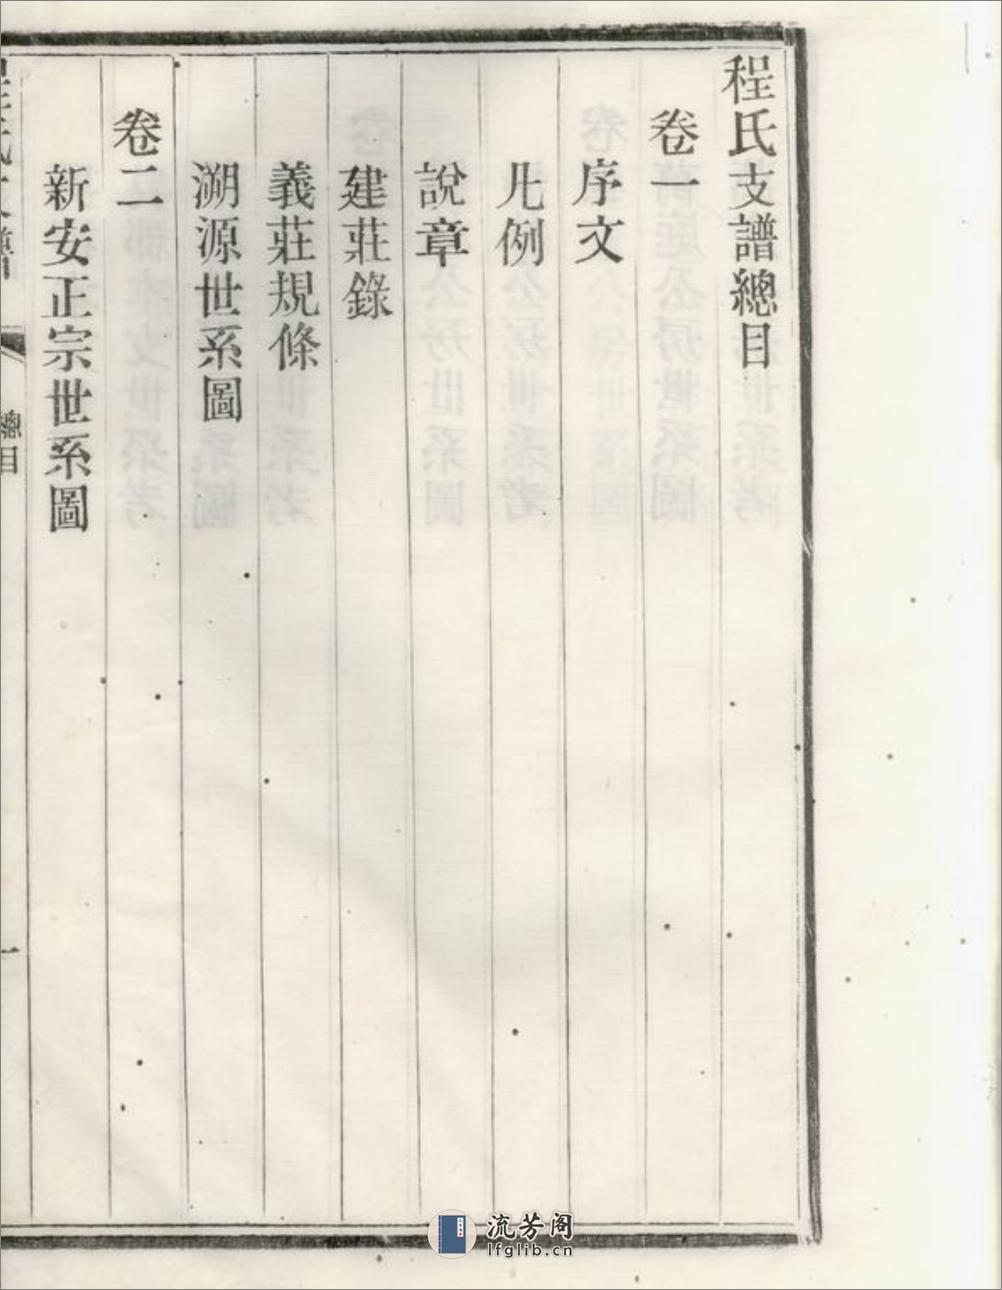 程氏支譜總目
卷一
序文
凡例
說章
建莊錄
義莊規條
溯源世系圖
卷二
新安正宗世系圖
程氏支譜
總目
一
流芳阁
lfglib.cn